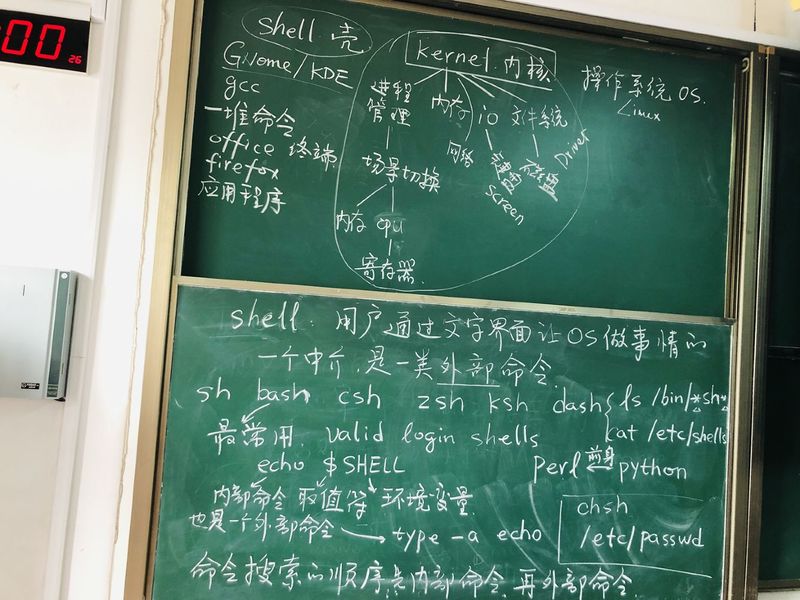 :00 26
shell 壳
Gnome/KDE
gcc
一堆命令
office 终端
firefox
应用程序
kernel 内核
进程管理
内存
io
文件系统
网络
键盘
screen
磁盘
Driver
场景切换
内存 cpu
寄存器
操作系统 OS.
Linux
shell: 用户通过文字界面让OS做事情的
一个中介, 是一类外部命令.
sh bash csh zsh ksh dash
ls /bin/*sh*
cat /etc/shells
最常用. valid login shells
echo $SHELL
perl 前身 python
内部命令 取值符 环境变量
也是一个外部命令 → type -a echo
chsh
/etc/passwd
命令搜索的顺序先内部命令, 再外部命令.